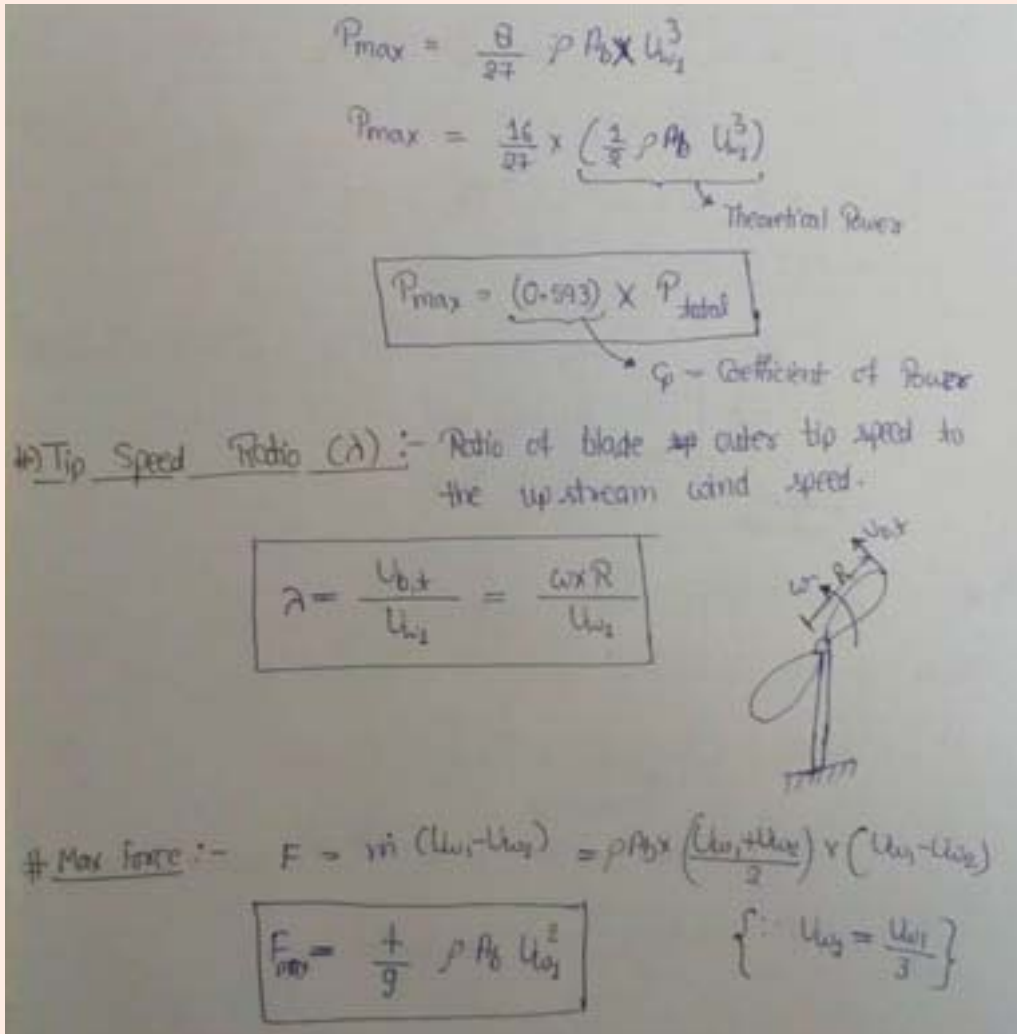 Pmax = 8/27 ρ Ab x Uw1^3
Pmax = 16/27 x (1/2 ρ Ab Uw1^3)
Theoretical Power
Pmax = (0.593) X Ptotal
Cp - Coefficient of Power
#) Tip Speed Ratio (λ) :- Ratio of blade outer tip speed to
the upstream wind speed.
λ = Ub,t / Uw1 = ω x R / Uw1
Ub,t
R
ω
# Max Force :- F = ṁ (Uw1-Uw2) = ρ Ab x (Uw1+Uw2 / 2) x (Uw1-Uw2)
= 4/9 ρ Ab Uw1^2
{∵ Uw2 = Uw1/3}